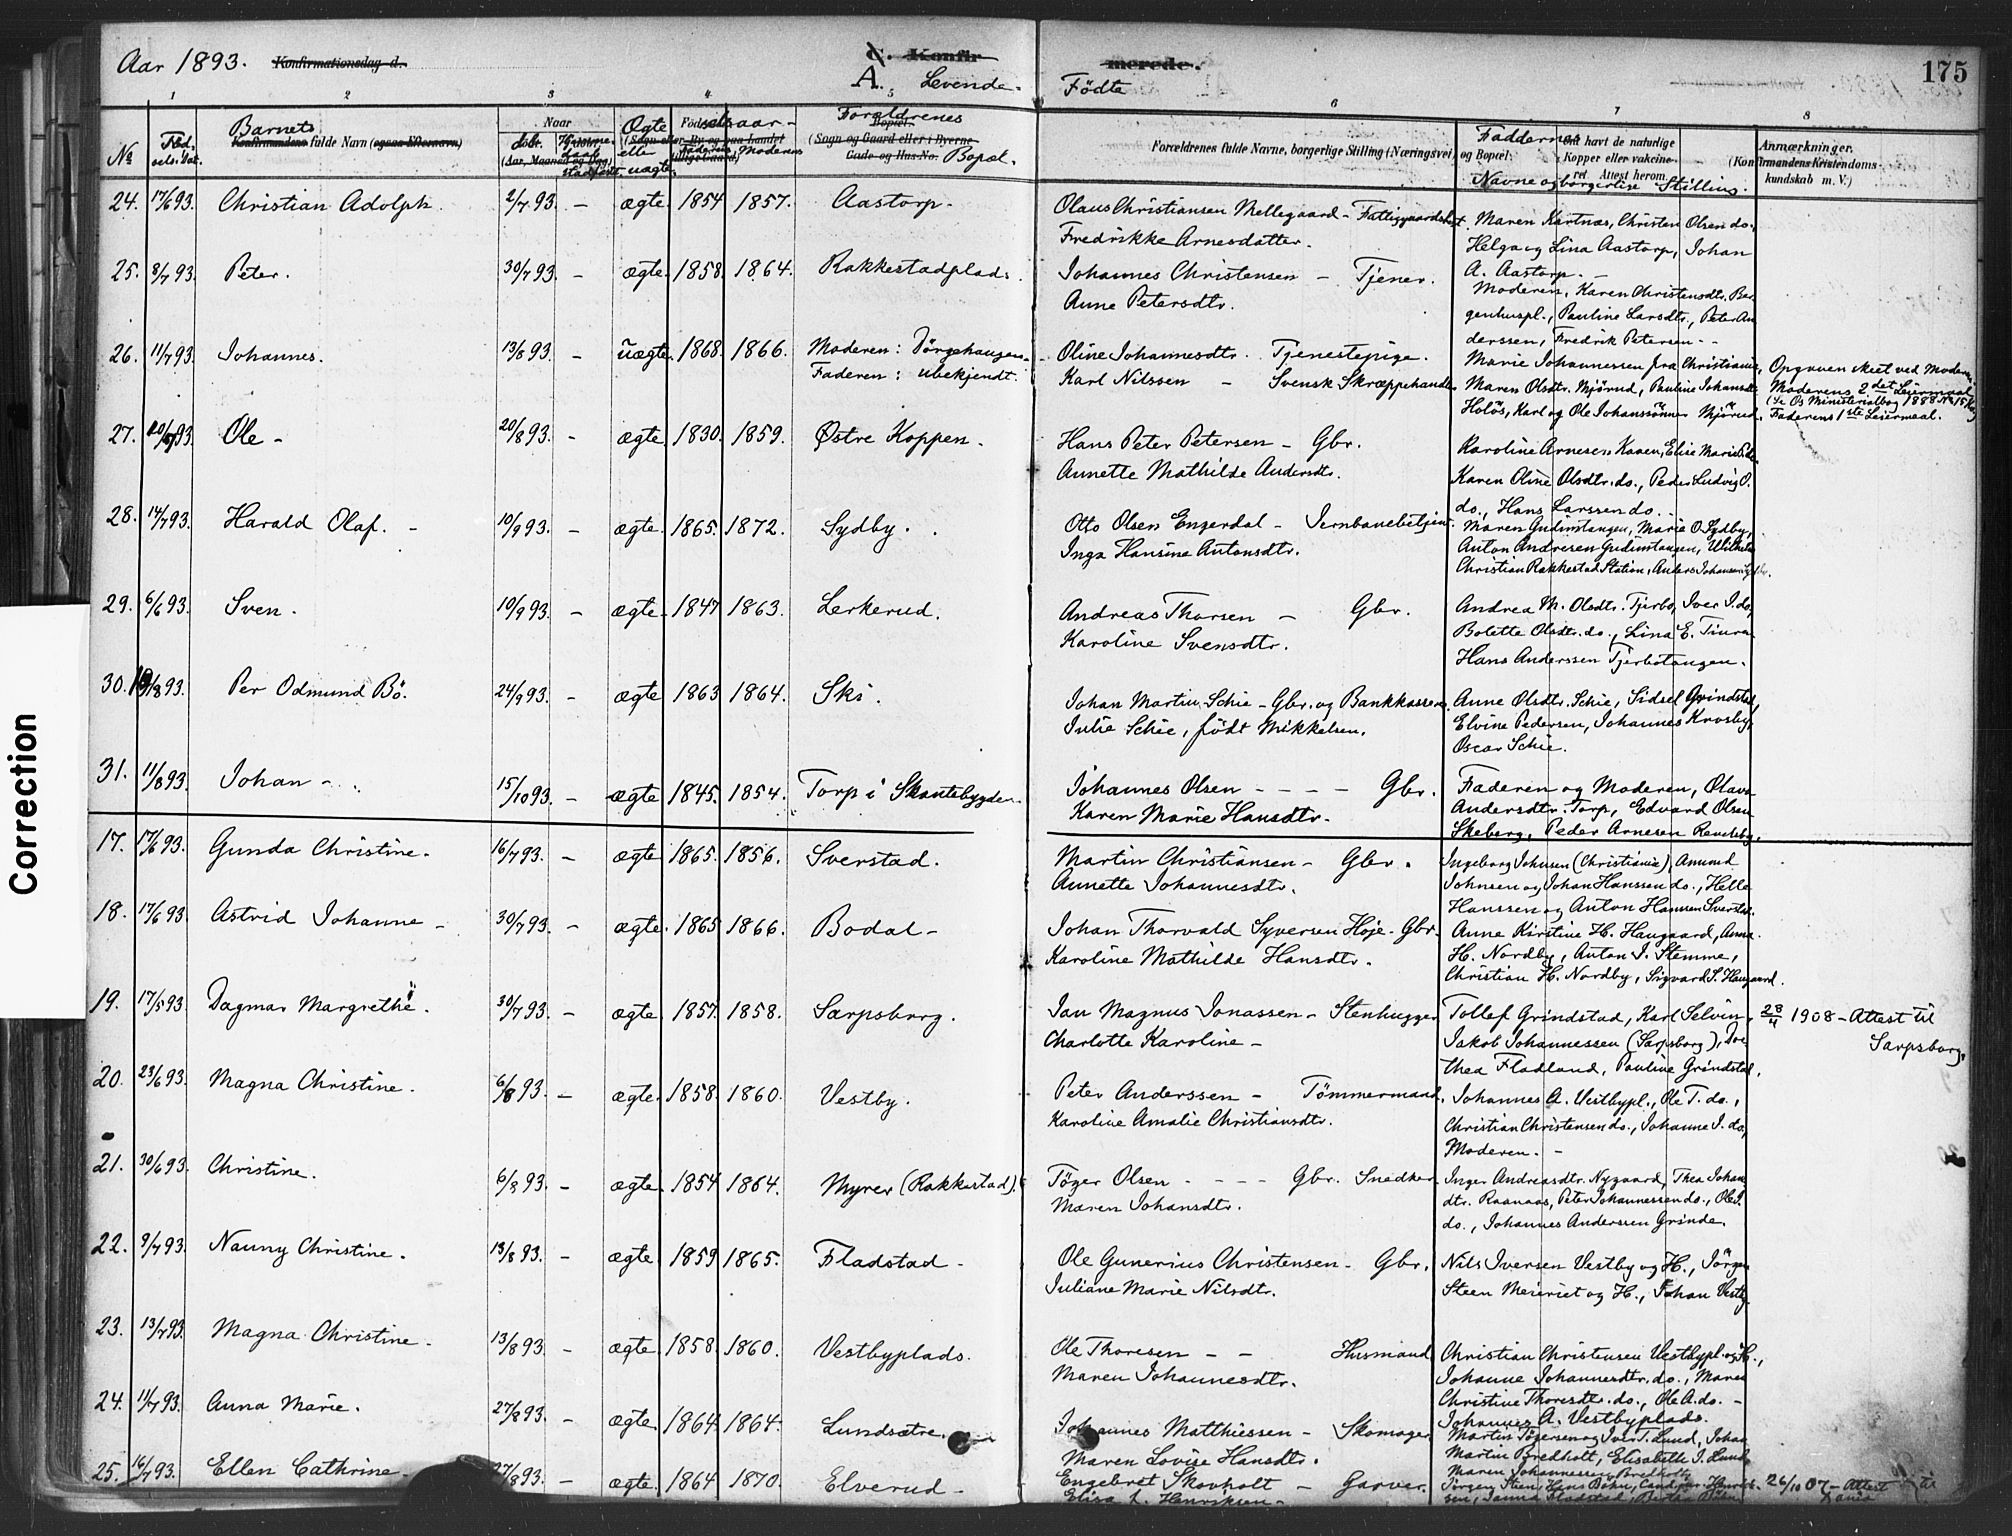 Aar 1893. Konfirmationsdag d. C. Konfirmerede. 175
A. Levende Födte
1 2 3 4 5 6 7 8
No Barnets fulde Navn Naar döbt. Ægte eller uægte Föd Faderens Moderens Forældrenes Bopæl. Forældrenes fulde Navne, borgerlige Stilling (Næringsvei) og Bopæl. Faddernes Navne og borgerlige Stilling. Anmærkninger.
24. 17/6 93. Christian Adolph. 2/7 93. - ægte. 1854 1857. Aastorp. Olaus Christiansen Mellegaard -
Fredrikke Arnesdatter. Maren Kartnæs, Christen Olsen do.
Helga og Lina Aastorp, Johan
A. Aastorp. -
25. 8/7 93. Peter. 30/7 93. - ægte. 1858. 1864. Rakkestadplads. Johannes Christensen - Tjener.
Anne Petersdtr. Moderen, Karen Christensdtr. Ber-
genhuspl., Pauline Larsdtr., Peter An
derssen, Fredrik Petersen - -
26. 11/7 93. Johannes. 13/8 93. - uægte. 1868. 1866. Moderen: Dörgehaugen
Faderen: ubekjendt. Oline Johannesdtr. Tjenestepige.
Karl Nilssen - Svensk Skræppehandler Marie Johannessen fra Christiania,
Maren Olsdtr. Mjörud, Pauline Johansdtr
Holös, Karl og Ole Johanssönner Mjörud. Opgaven skeet ved Moderen
Moderens 2det Leiermaal
Faderens 1ste Leiermaal.
27. Ole - 20/8 93. - ægte. 1830. 1859. Østre Koppen. Hans Peter Petersen - Gbr.
Annette Mathilde Andersdtr. Karoline Arnesen Kaaen, Elise Marie
Karen Oline Olsdtr. do., Peder Ludvig O.
do., Hans Larssen do. -
28. 14/7 93. Harald Olaf. - 10/9 93. - ægte. 1865. 1872. Sydby. Otto Olsen Engerdal - Jernbanebetjen.
Inga Hansine Antonsdtr. Maren Gudimstangen, Marie O. Sydby,
Anton Andresen Gudimstangen, Wilhelm
Christian Rakkestad Station, Anders Johansen
29. 6/6 93. Sven. 10/9 93. - ægte. 1847 1863. Lerkerud. Andreas Thorsen - Gbr.
Karoline Svensdtr. Andrea M. Olsdtr. Tjerbo, Iver I. do,
Bolette Olsdtr. do., Lina E. Tiura
Hans Anderssen Tjerbotangen.
30. Per Odmund Bö. 24/9 93. - ægte 1863 1864. Ski. Johan Martin Schie - Gbr. og Bankkasserer.
Julie Schie, födt Mikkelsen. Anne Olsdtr. Schie, Sidsel Grindstad,
Elvine Pedersen, Johannes Krosby,
Oscar Schie.
31. 11/8 93. Johan - 15/10 93. - ægte 1845. 1854. Torp i Skantebygden. Johannes Olsen - - - - Gbr.
Karen Marie Hansdtr. Faderen og Moderen, Olava
Andersdtr. Torp, Edvard Olsen
Skeberg, Peder Arnesen Revelsby.
17. 17/6 93. Gunda Christine. 16/7 93. - ægte 1865. 1856. Sverstad. Martin Christiansen - Gbr.
Annette Johannesdtr. Ingeborg Johnsen (Christiania), Amund
Johnsen og Johan Hanssen do., Helle
Hanssen og Anton Hansen Sverstad.
18. 17/6 93 Astrid Johanne - 30/7 93. - ægte. 1865 1866. Bodal - Johan Thorvald Syversen Höje - Gbr.
Karoline Mathilde Hansdtr. Anne Kirstine H. Haugaard, Anna
H. Nordby, Anton J. Stemme,
Christian H. Nordby, Sigvard S. Haugaard.
19. 17/5 93. Dagmar Margrethe. 30/7 93. - ægte. 1857. 1858. Sarpsborg. Jan Magnus Jonassen - Stenhugger
Charlotte Karoline - Tollef Grindstad, Karl Selvin,
Jakob Johannessen (Sarpsborg), Do
thea Fladland, Pauline Grindstad. 28/4 1908 - Attest til
Sarpsborg.
20. 23/6 93. Magna Christine. 6/8 93. - ægte. 1858. 1860. Vestby. Peter Anderssen - Tömmermand.
Karoline Amalie Christiansdtr. Johannes A. Vestbypl., Ole T. do.,
Christian Christensen do., Johanne J. do,
Moderen. -
21. 30/6 93. Christine. 6/8 93. - ægte. 1854 1864. Myrer (Rakkestad). Töger Olsen - - - - Gbr. Snedker.
Maren Johansdtr. Inger Andreasdtr. Nygaard, Thea Johan
dtr. Raanaas, Peter Johannessen do., Ole J.
do., Johannes Anderssen Grinde.
22. 9/7 93. Nanny Christine. 13/8 93. - ægte. 1859 1865. Fladstad - Ole Gunerius Christensen - Gbr.
Juliane Marie Nilsdtr. Nils Iversen Vestby og H., Jörgen
Steen Meieriet og H., Johan Vestby.
23. 13/7 93. Magna Christine. 13/8 93. - ægte. 1858. 1860. Vestbyplads. Ole Thoresen - - Husmand
Maren Johannesdtr. Christian Christensen Vestbypl. og H.,
Johanne Johannesdtr. do., Maren
Christine Thoresdtr. do., Ole A. do. -
Johannes A. Vestbyplads.
24. 11/7 93. Anna Marie. 27/8 93. - ægte. 1864. 1864. Lundsætre. Johannes Matthiessen - Skomager.
Maren Lovise Hansdtr. Martin Tögersen og Iver T. Lund, Johan
Martin Bredholt, Elisabeth J. Lund
Maren Johannessen Bredholt
25. 16/7 93. Ellen Cathrine. 27/8 93. - ægte. 1864 1870. Elverud - Engebret Skovholt - Garver.
Elisa L. Henriksen - Jörgen Steen, Hans Böhn, 26/10 07 - Attest
Correction